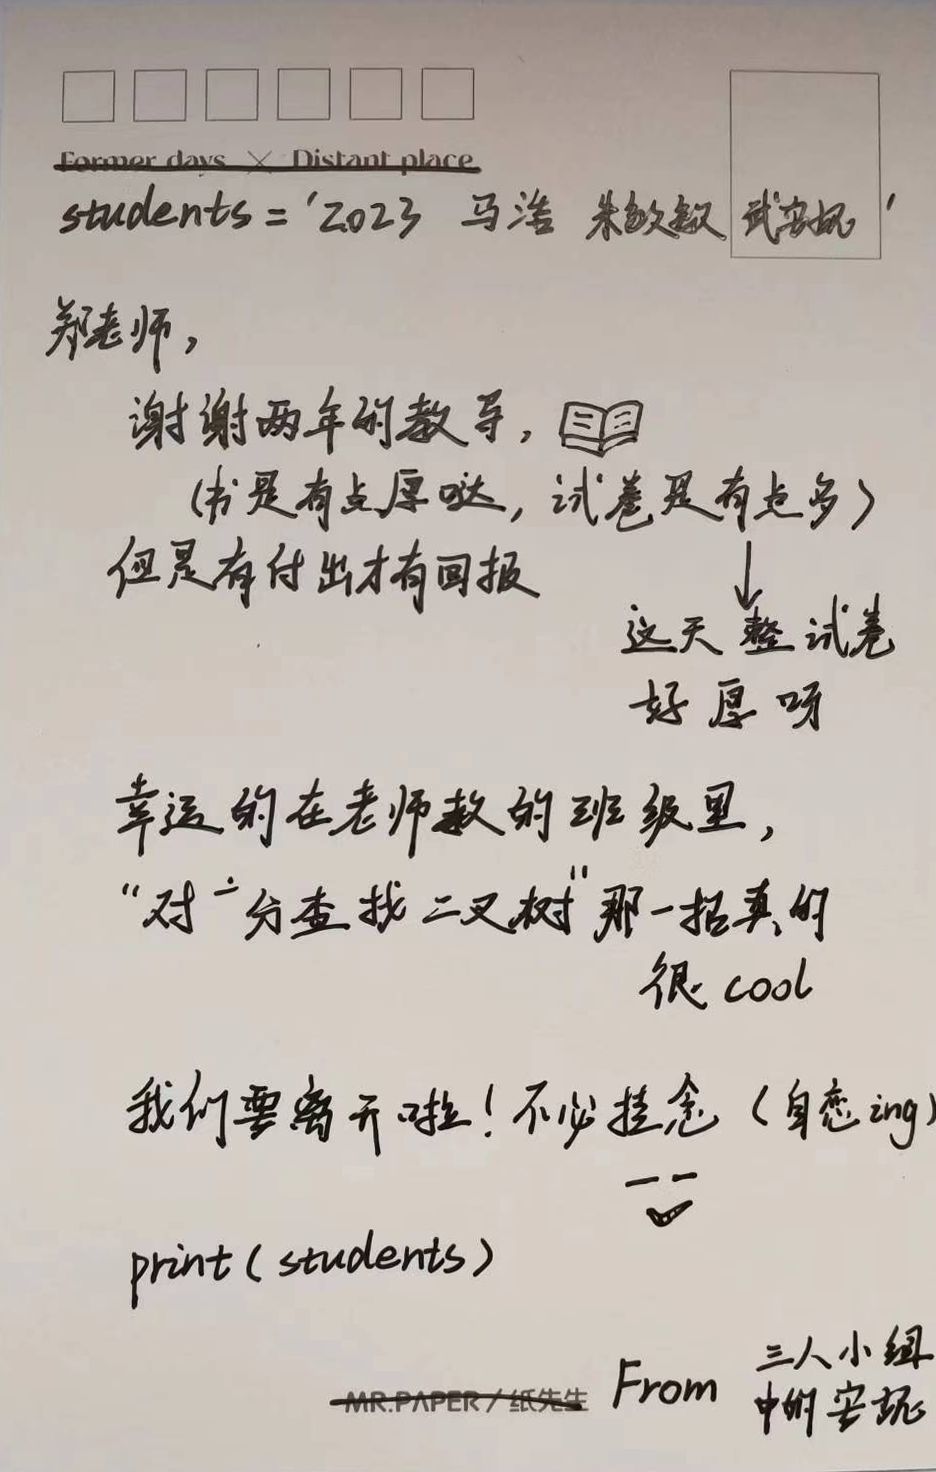 Former days × Distant place
students = '2023 马浩 朱敏敏 武安妮'
郑老师,
谢谢两年的教导,
(书是有点厚哒, 试卷是有点多)
但是有付出才有回报
这天整试卷
好厚呀
幸运的在老师教的班级里,
“对二分查找二叉树”那一招真的
很 cool
我们要离开啦! 不必挂念 (自恋ing)
print(students)
MR.PAPER / 纸先生
From 三人小组
中的安妮